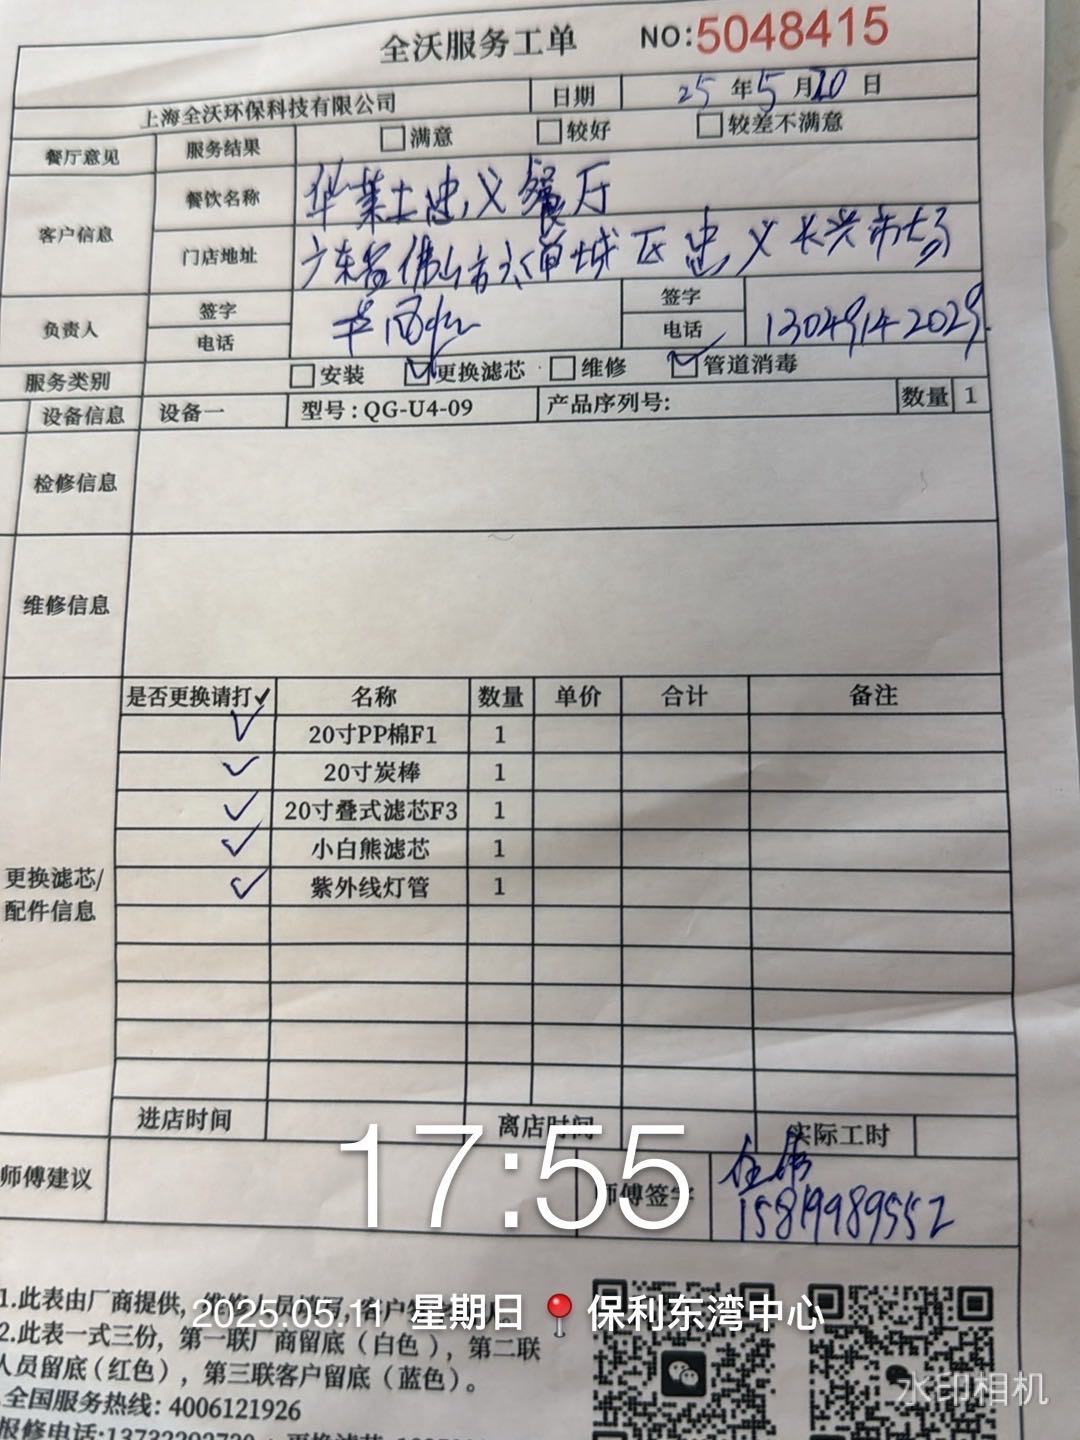 全沃服务工单 NO:5048415
上海全沃环保科技有限公司 日期 25年5月10日
餐厅意见 服务结果 满意 较好 较差不满意
客户信息 餐饮名称 华莱士忠义餐厅
门店地址 广东省佛山市 城区忠义长兴市场
负责人 签字 签字
电话 电话 13049142029
服务类别 安装 更换滤芯 维修 管道消毒
设备信息 设备一 型号:QG-U4-09 产品序列号: 数量 1
检修信息
维修信息
是否更换请打✓ 名称 数量 单价 合计 备注
✓ 20寸PP棉F1 1
✓ 20寸炭棒 1
✓ 20寸叠式滤芯F3 1
✓ 小白熊滤芯 1
✓ 紫外线灯管 1
更换滤芯/
配件信息
进店时间 离店时间 实际工时
17:55
师傅建议 师傅签字
15819989552
1.此表由厂商提供,
2025.05.11 星期日 保利东湾中心
2.此表一式三份，第一联厂商留底（白色），第二联
人员留底（红色），第三联客户留底（蓝色）。
全国服务热线: 4006121926
报修电话:
水印相机